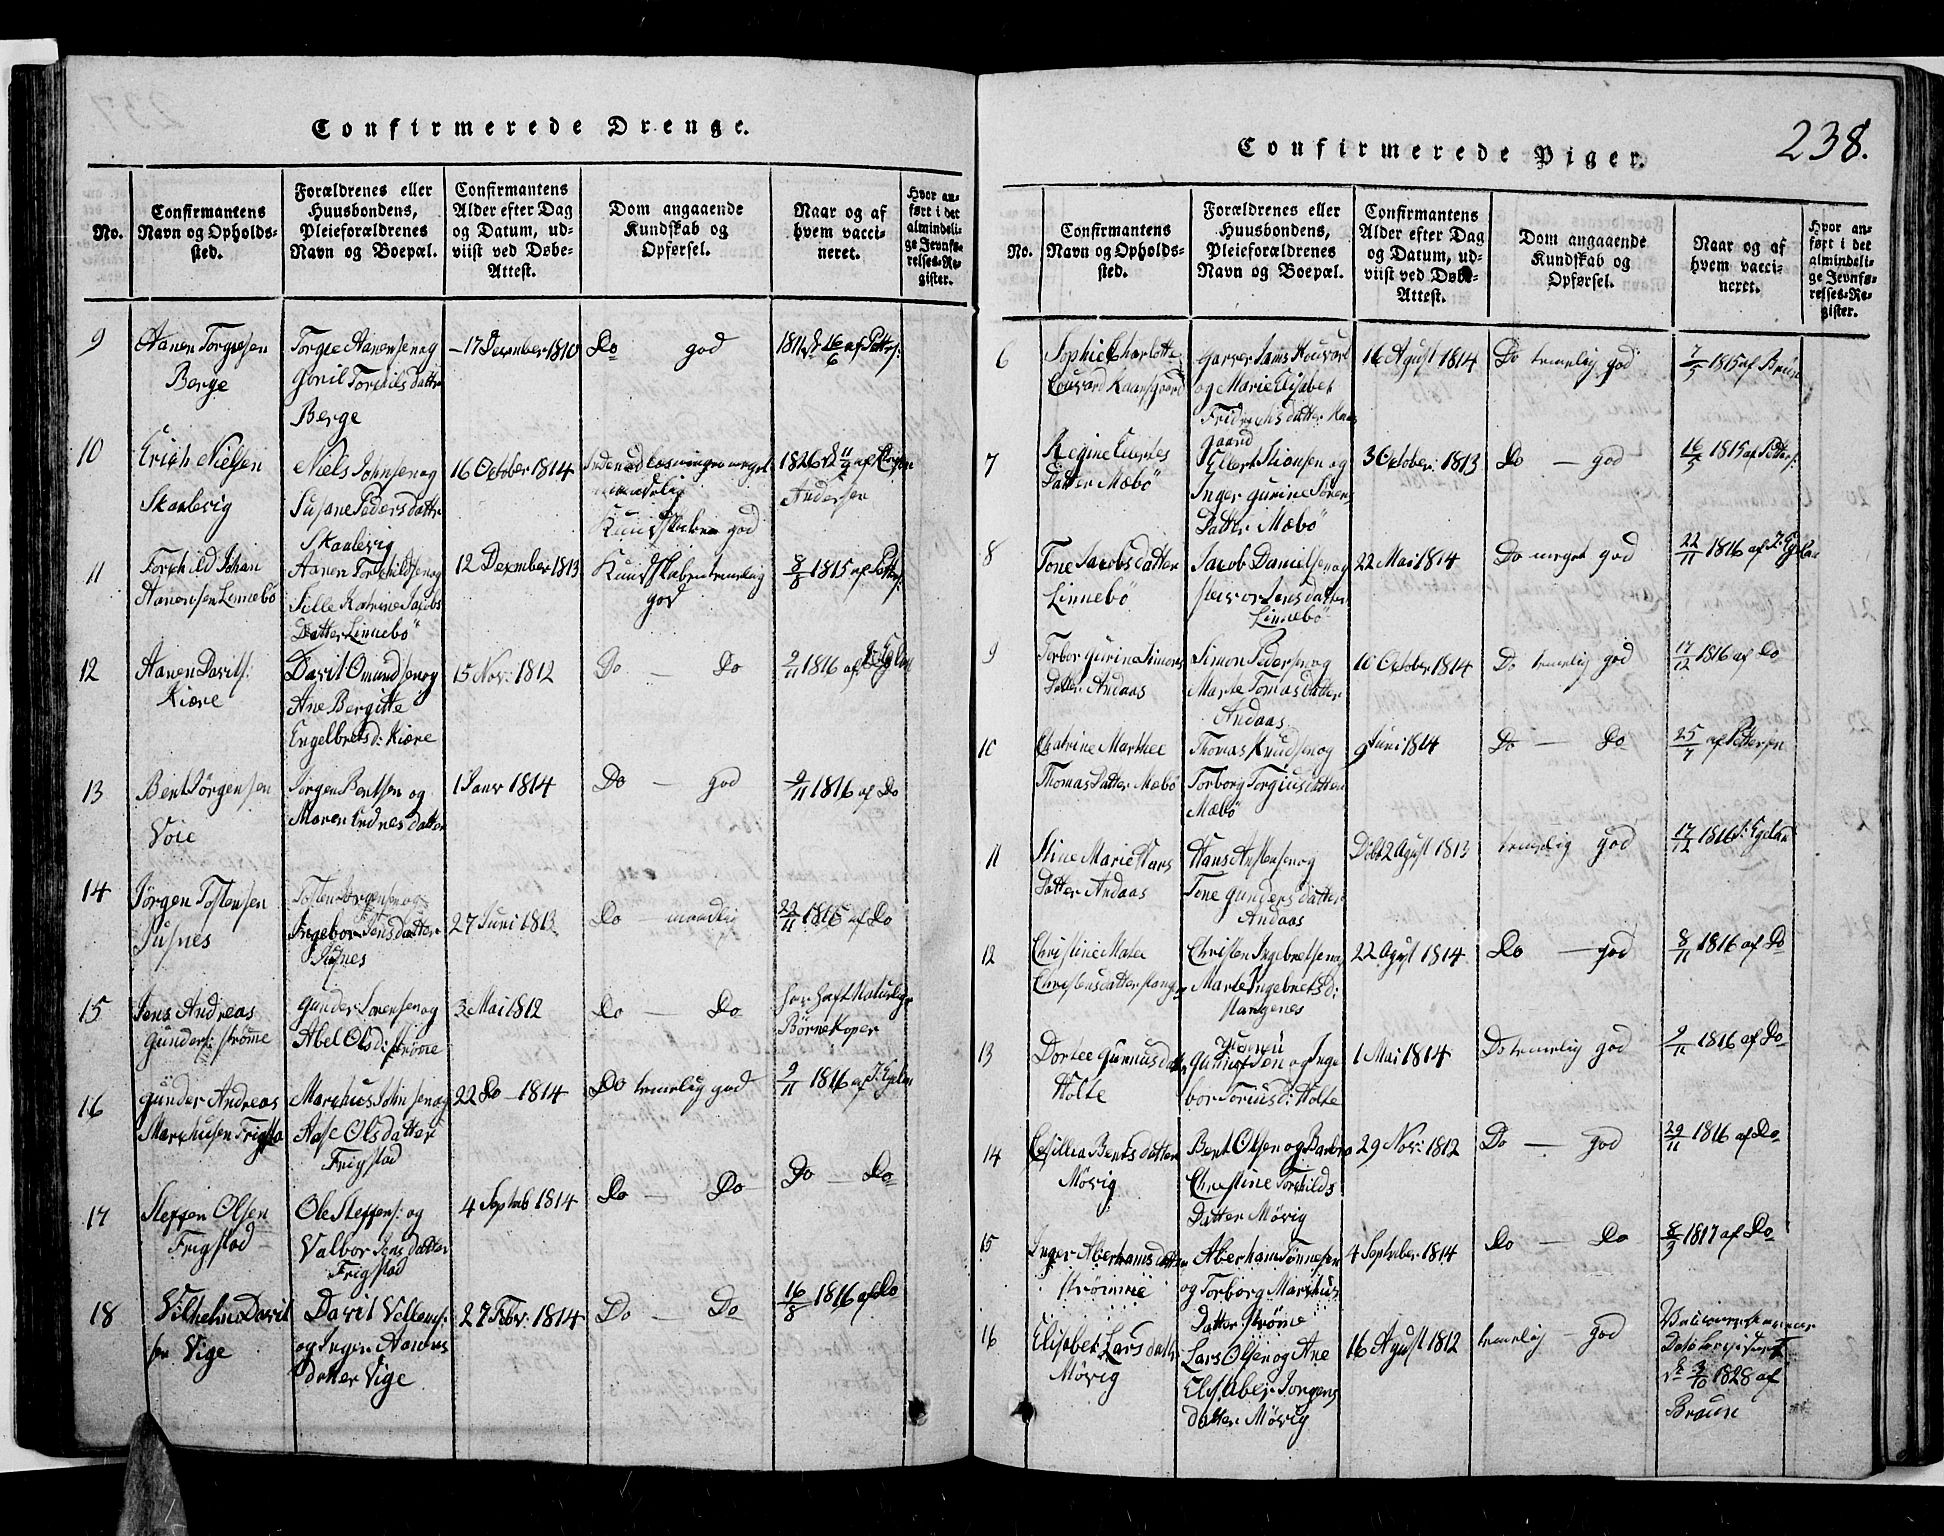 Confirmerede Drenge.
No.
Confirmantens
Navn og Opholds-
sted.
Forældrenes eller
Huusbondens,
Pleieforældrenes
Navn og Boepæl.
Confirmantens
Alder efter Dag
og Datum, ud-
viist ved Døbe-
Attest.
Dom angaaende
Kundskab og
Opførsel.
Naar og af
hvem vacci-
neret.
Hvor an-
ført i det
almindeli-
ge Jevnfø-
relses-Re-
gister.
9
Aanen Torgiesen
Berge
Torgie Aanensen og
Gonil Torkils datter
Berge
17 December 1810
Do god
10
Erich Nielsen
Skaalevig
Niels Johnsen og
Susane Peders datter
Skaalevig
16 October 1814
Kundskaben god
Andersen
11
Torchild Johan
Aanensen Linnebö
Aanen Torchildsen og
Sille Katrine Jacobs
Datter Linnebö
12 December 1813
Kundskaben temelig
god
8/8 1815 af Petters:
12
Aanen Davids:
Kiære
David Omundsen og
Ane Bergitte
Engelbrets d: Kiære
15 Nov: 1812
Do — Do
9/11 1816 af J: Eglan
13
Bent Jørgensen
Voie
Jørgen Bentsen og
Maren Endres datter
1 Janr 1814
Do — god
9/11 1816 af Do
14
Jörgen Tostensen
Susnes
Tosten Jorgensen og
Ingebor Jens datter
27 Juni 1813
Do — maadlig
22/11 1816 af Do
15
Jens Andreas
Gunders: Strømme
Gunder Sørensen og
Abel Ols d: Strømme
3 Mai 1812
Do — Do
har haft Naturlige
Børnekoper
16
Gunder Andreas
Marchusen Frigsta
Marchus Johnsen og
Aase Ols datter
Frigstad
22 Do — 1814
Do temelig god
9/11 1816 af J: Eglan
17
Steffen Olsen
Frigstad
Ole Steffens: og
Valbor Jens datter
Frigstad
4 Septemb 1814
Do — Do
Do — Do
18
Vilhelm David
sen Vige
David Vellems:
og Inger Aanens
datter Vige
27 Febr: 1814
Do — Do
16/8 1816 af Do
Confirmerede Piger.
238.
No.
Confirmantens
Navn og Opholds-
sted.
Forældrenes eller
Huusbondens,
Pleieforældrenes
Navn og Boepæl.
Confirmantens
Alder efter Dag
og Datum, ud-
viist ved Døbe-
Attest.
Dom angaaende
Kundskab og
Opførsel.
Naar og af
hvem vacci-
neret.
Hvor an-
ført i det
almindeli-
ge Jevnfø-
relses-Re-
gister.
6
Sophie Charlotte
og Marie Elisabet
Fridrichs datter
gaard
16 Agust 1814
Do temelig god
7/5 1815 af Brun
7
Regine
Datter Mæbö
Ellert Stiansen og
Inger Gurine Sören
Datter Mæbö
3 October: 1813
Do — god
16/5 1815 af Petters:
8
Tone Jacobs datter
Linnebö
Jacob Danielsen og
Jens datter
Linnebö
22 Mai 1814
Do meget god
22/11 1816 af J: Eglan
9
Torbor Gurine Simons
Datter Andaas
Simon Pedersen og
Marte Tomas datter
Andaas
10 October 1814
Do temelig god
17/12 1816 af Do
10
Chatrine Marthee
Thomas datter Mæbö
Thomas Knudsen og
Torborg Torgius datter
Mæbö
9 Juni 1814
Do — Do
25/7 af Pettersen
11
Stine Marie Hans
Datter Andaas
Hans Anstensen og
Tone Gunders datter
Andaas
Døbt 2 Agust 1813
temelig god
17/12 1816 J: Eglan
12
Christine Malee
Christens datter Stangenes
Christen Ingebretsen og
Marte Ingebrets d:
Stangenes
22 Agust 1814
Do — god
8/11 1816 af Do
13
Dortee Gunnus datter
Holte
Gunnusen og Inge
bor Torius d: Holte
1 Mai 1814
Do temelig god
9/11 1816 af Do
14
Cesillia Bents datter
Møvig
Bent Olsen og Barbro
Christine Torkilds
Datter Møvig
29 Nov: 1812
Do — god
29/11 1816 af Do
15
Inger Aberhams datter
Strømme
Aberham Tønnesen
og Torborg Markus
Datter Strøme
4 September 1814
Do — Do
8/3 1817 af Do
16
Elisabet Lars datter
Møvig
Lars Olsen og Ane
Elisabet Jorgens
datter Møvig
16 Agust 1812
temelig — god
3/10 1828 af
Bruun